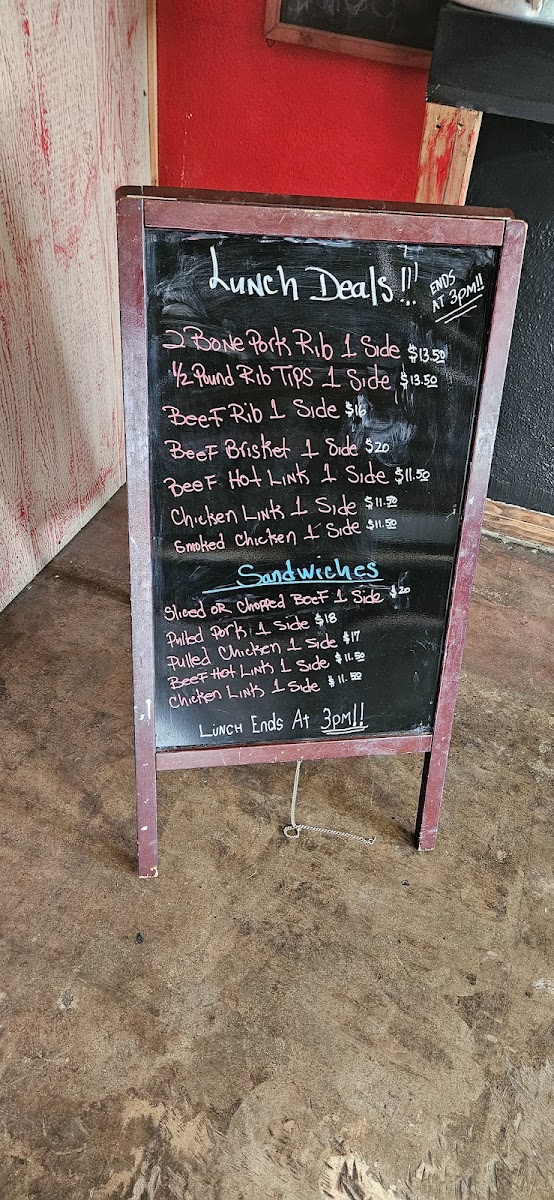 Lunch Deals!!!
ENDS
AT 3PM!!
2 Bone Pork Rib 1 Side $13.50
1/2 Pound Rib Tips 1 Side $13.50
Beef Rib 1 Side $16
Beef Brisket 1 Side $20
Beef Hot Link 1 Side $11.50
Chicken Link 1 Side $11.50
Smoked Chicken 1 Side $11.50
Sandwiches
Sliced or Chopped Beef 1 Side $20
Pulled Pork 1 Side $18
Pulled Chicken 1 Side $17
Beef Hot Link 1 Side $11.50
Chicken Link 1 Side $11.50
Lunch Ends At 3PM!!